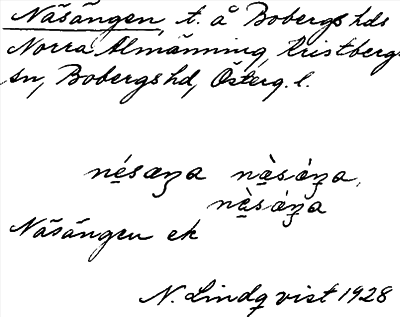 Näsängen, t. å Bobergs hds
Norra Allmänning, Kristbergs
sn, Bobergs hd, Österg. l.
Näsängen ek
N. Lindqvist 1928